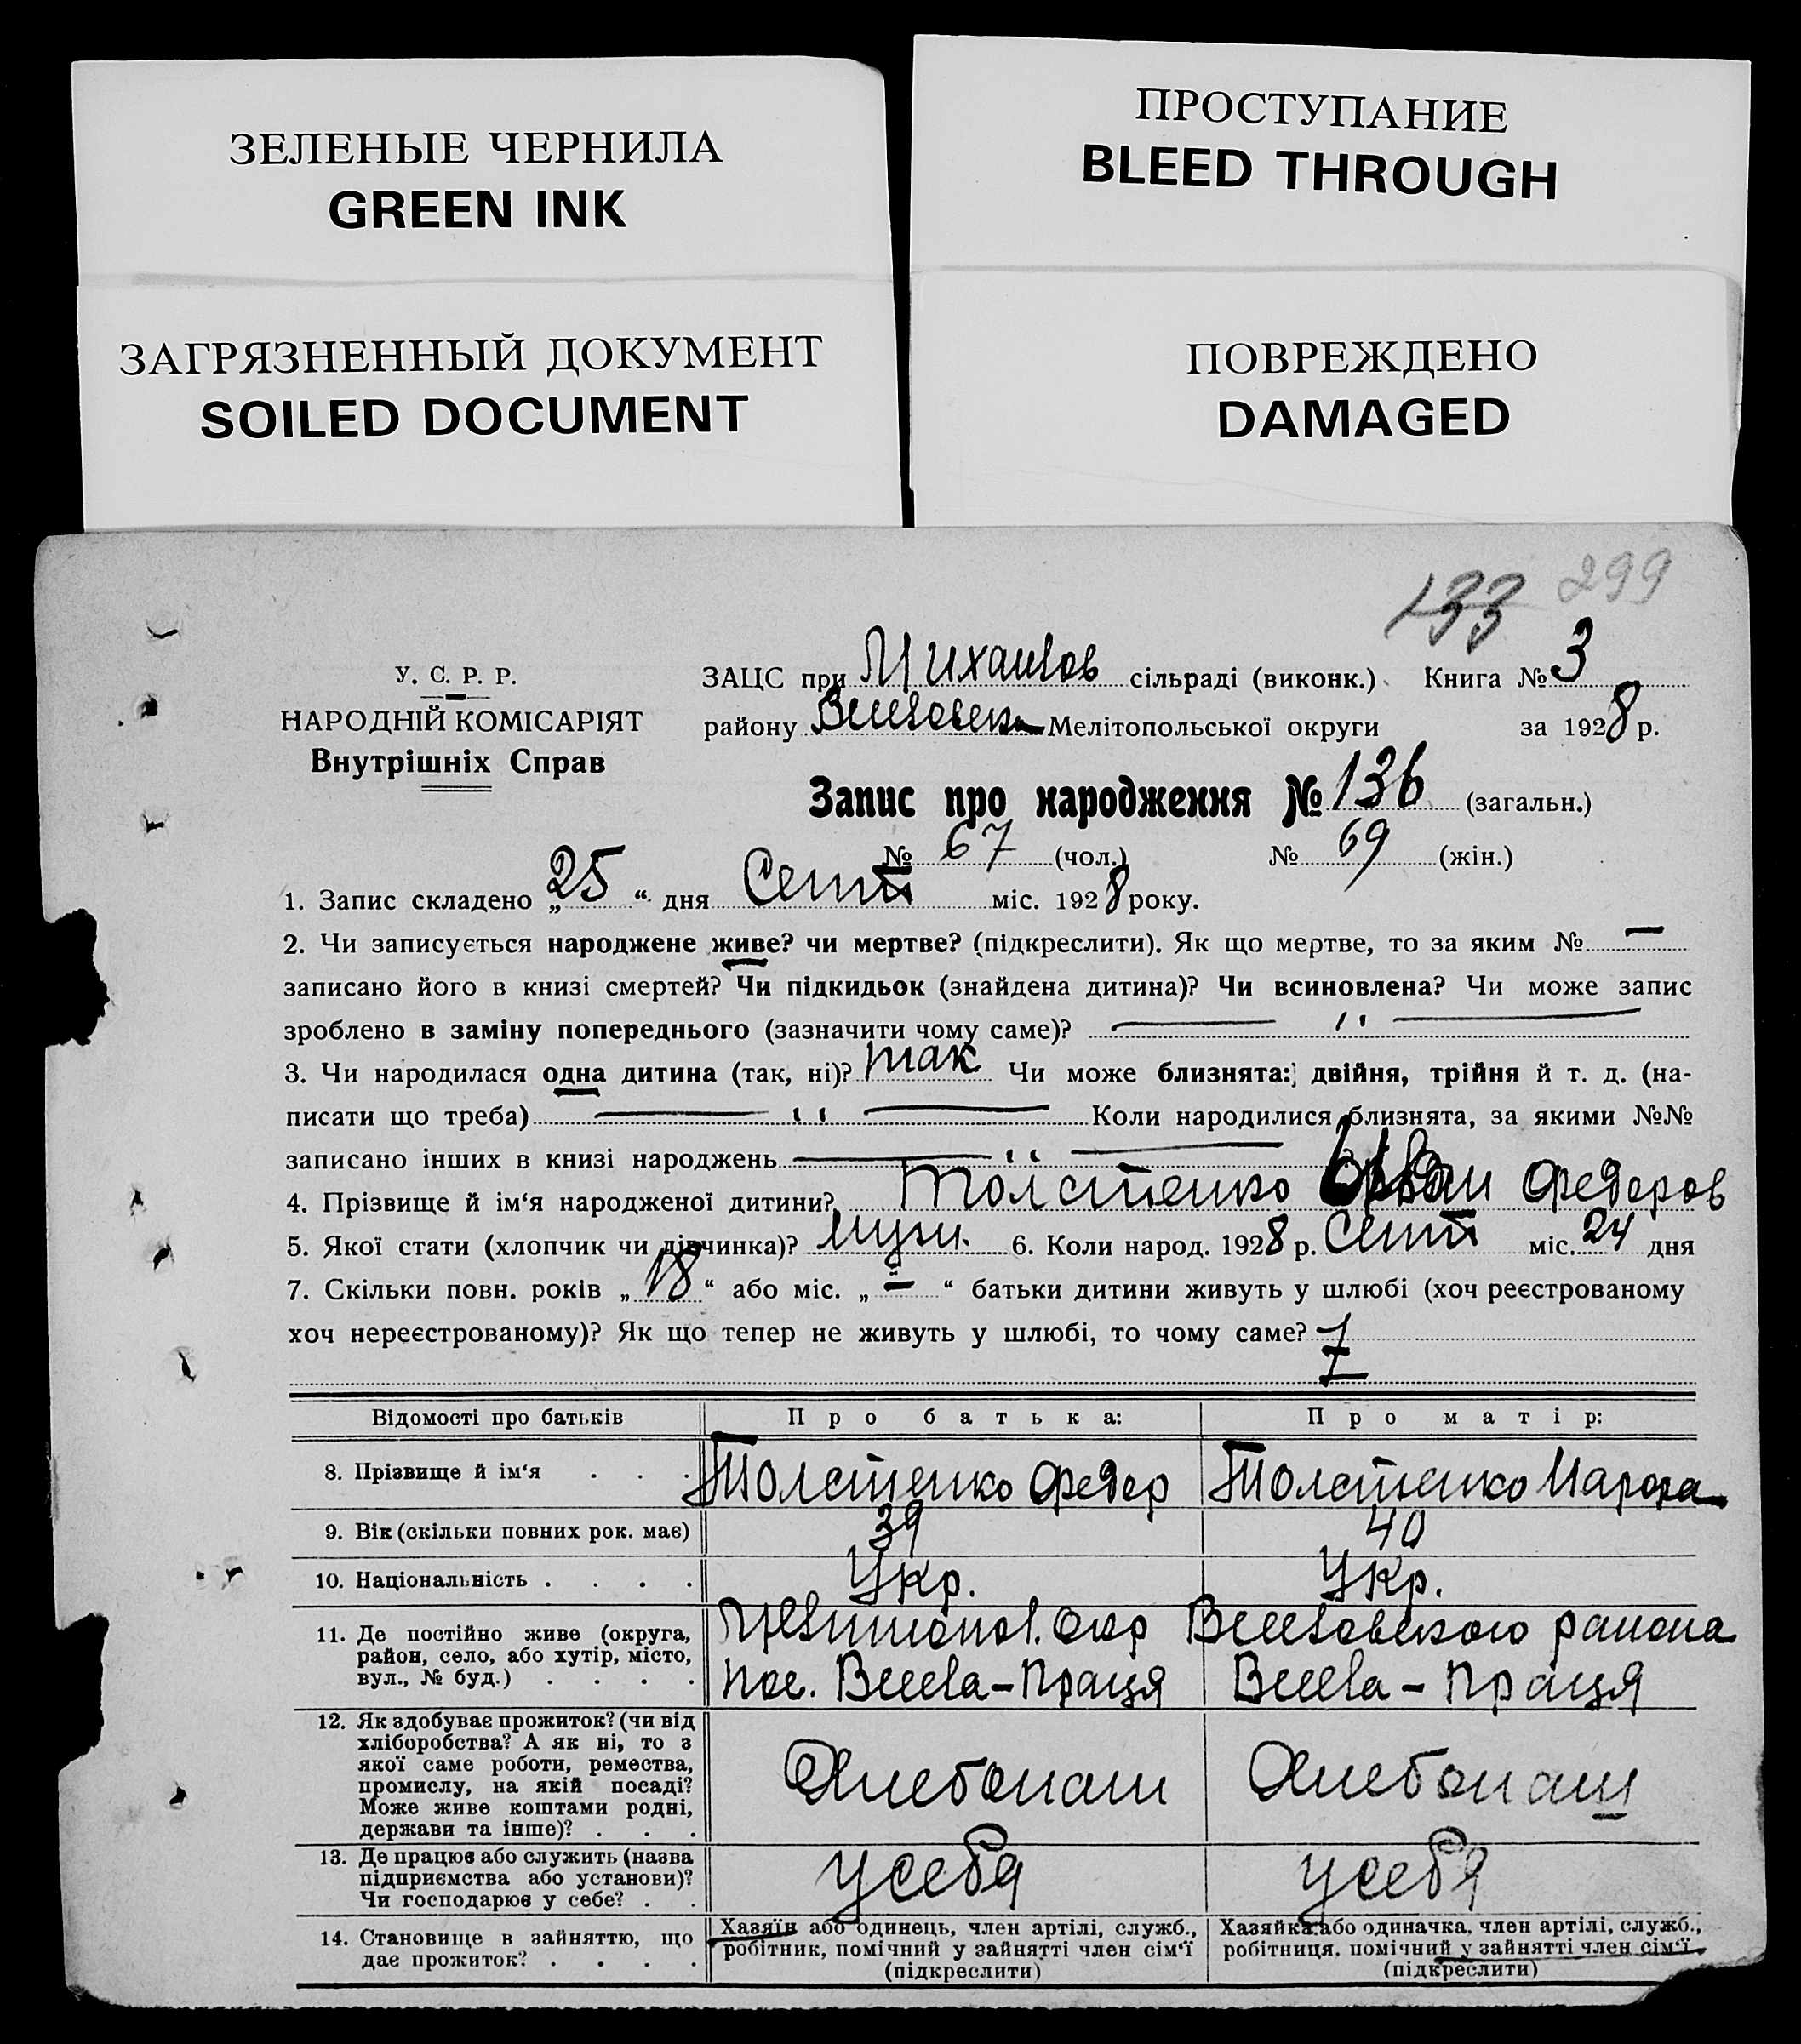 ЗЕЛЕНЫЕ ЧЕРНИЛА
GREEN INK
ЗАГРЯЗНЕННЫЙ ДОКУМЕНТ
SOILED DOCUMENT
ПРОСТУПАНИЕ
BLEED THROUGH
ПОВРЕЖДЕНО
DAMAGED
133 299
У. С. Р. Р.
НАРОДНІЙ КОМІСАРІЯТ
Внутрішніх Справ
ЗАЦС при Михайлов сільраді (виконк.) Книга № 3
району Веселовськ Мелітопольської округи за 1928 р.
Запис про народження № 136 (загальн.)
№ 67 (чол.) № 69 (жін.)
1. Запис складено „25“ дня Сент міс. 1928 року.
2. Чи записується народжене живе? чи мертве? (підкреслити). Як що мертве, то за яким № —
записано його в книзі смертей? Чи підкидьок (знайдена дитина)? Чи всиновлена? Чи може запис
зроблено в заміну попереднього (зазначити чому саме)? — " —
3. Чи народилася одна дитина (так, ні)? так Чи може близнята: двійня, трійня й т. д. (на-
писати що треба) — " — Коли народилися близнята, за якими №№
записано інших в книзі народжень — " —
4. Прізвище й ім‘я народженої дитини? Толстенко Иван Федоров
5. Якої стати (хлопчик чи дівчинка)? мужч. 6. Коли народ. 1928 р. Сент міс. 24 дня
7. Скільки повн. років „18“ або міс. „—“ батьки дитини живуть у шлюбі (хоч реєстрованому
хоч нереєстрованому)? Як що тепер не живуть у шлюбі, то чому саме?
Відомості про батьків Про батька: Про матір:
8. Прізвище й ім‘я . . . Толстенко Федор Толстенко
9. Вік (скільки повних рок. має) 39 40
10. Національність . . . . Укр. Укр.
11. Де постійно живе (округа,
район, село, або хутір, місто,
вул., № буд.) . . . .
Окр Веселовского района
пос. Весела-Праця Весела-Праця
12. Як здобуває прожиток? (чи від
хліборобства? А як ні, то з
якої саме роботи, ремества,
промислу, на якій посаді?
Може живе коштами родні,
держави та інше)? . . .
Хлебопаш Хлебопаш
13. Де працює або служить (назва
підприємства або установи)?
Чи господарює у себе? . .
у себя у себя
14. Становище в зайняттю, що
дає прожиток? . . . .
Хазяїн або одинець, член артілі, служб.,
робітник, помічний у зайнятті член сім‘ї
(підкреслити)
Хазяйка або одиначка, член артілі, служб.,
робітниця, помічний у зайнятті член сім‘ї
(підкреслити)